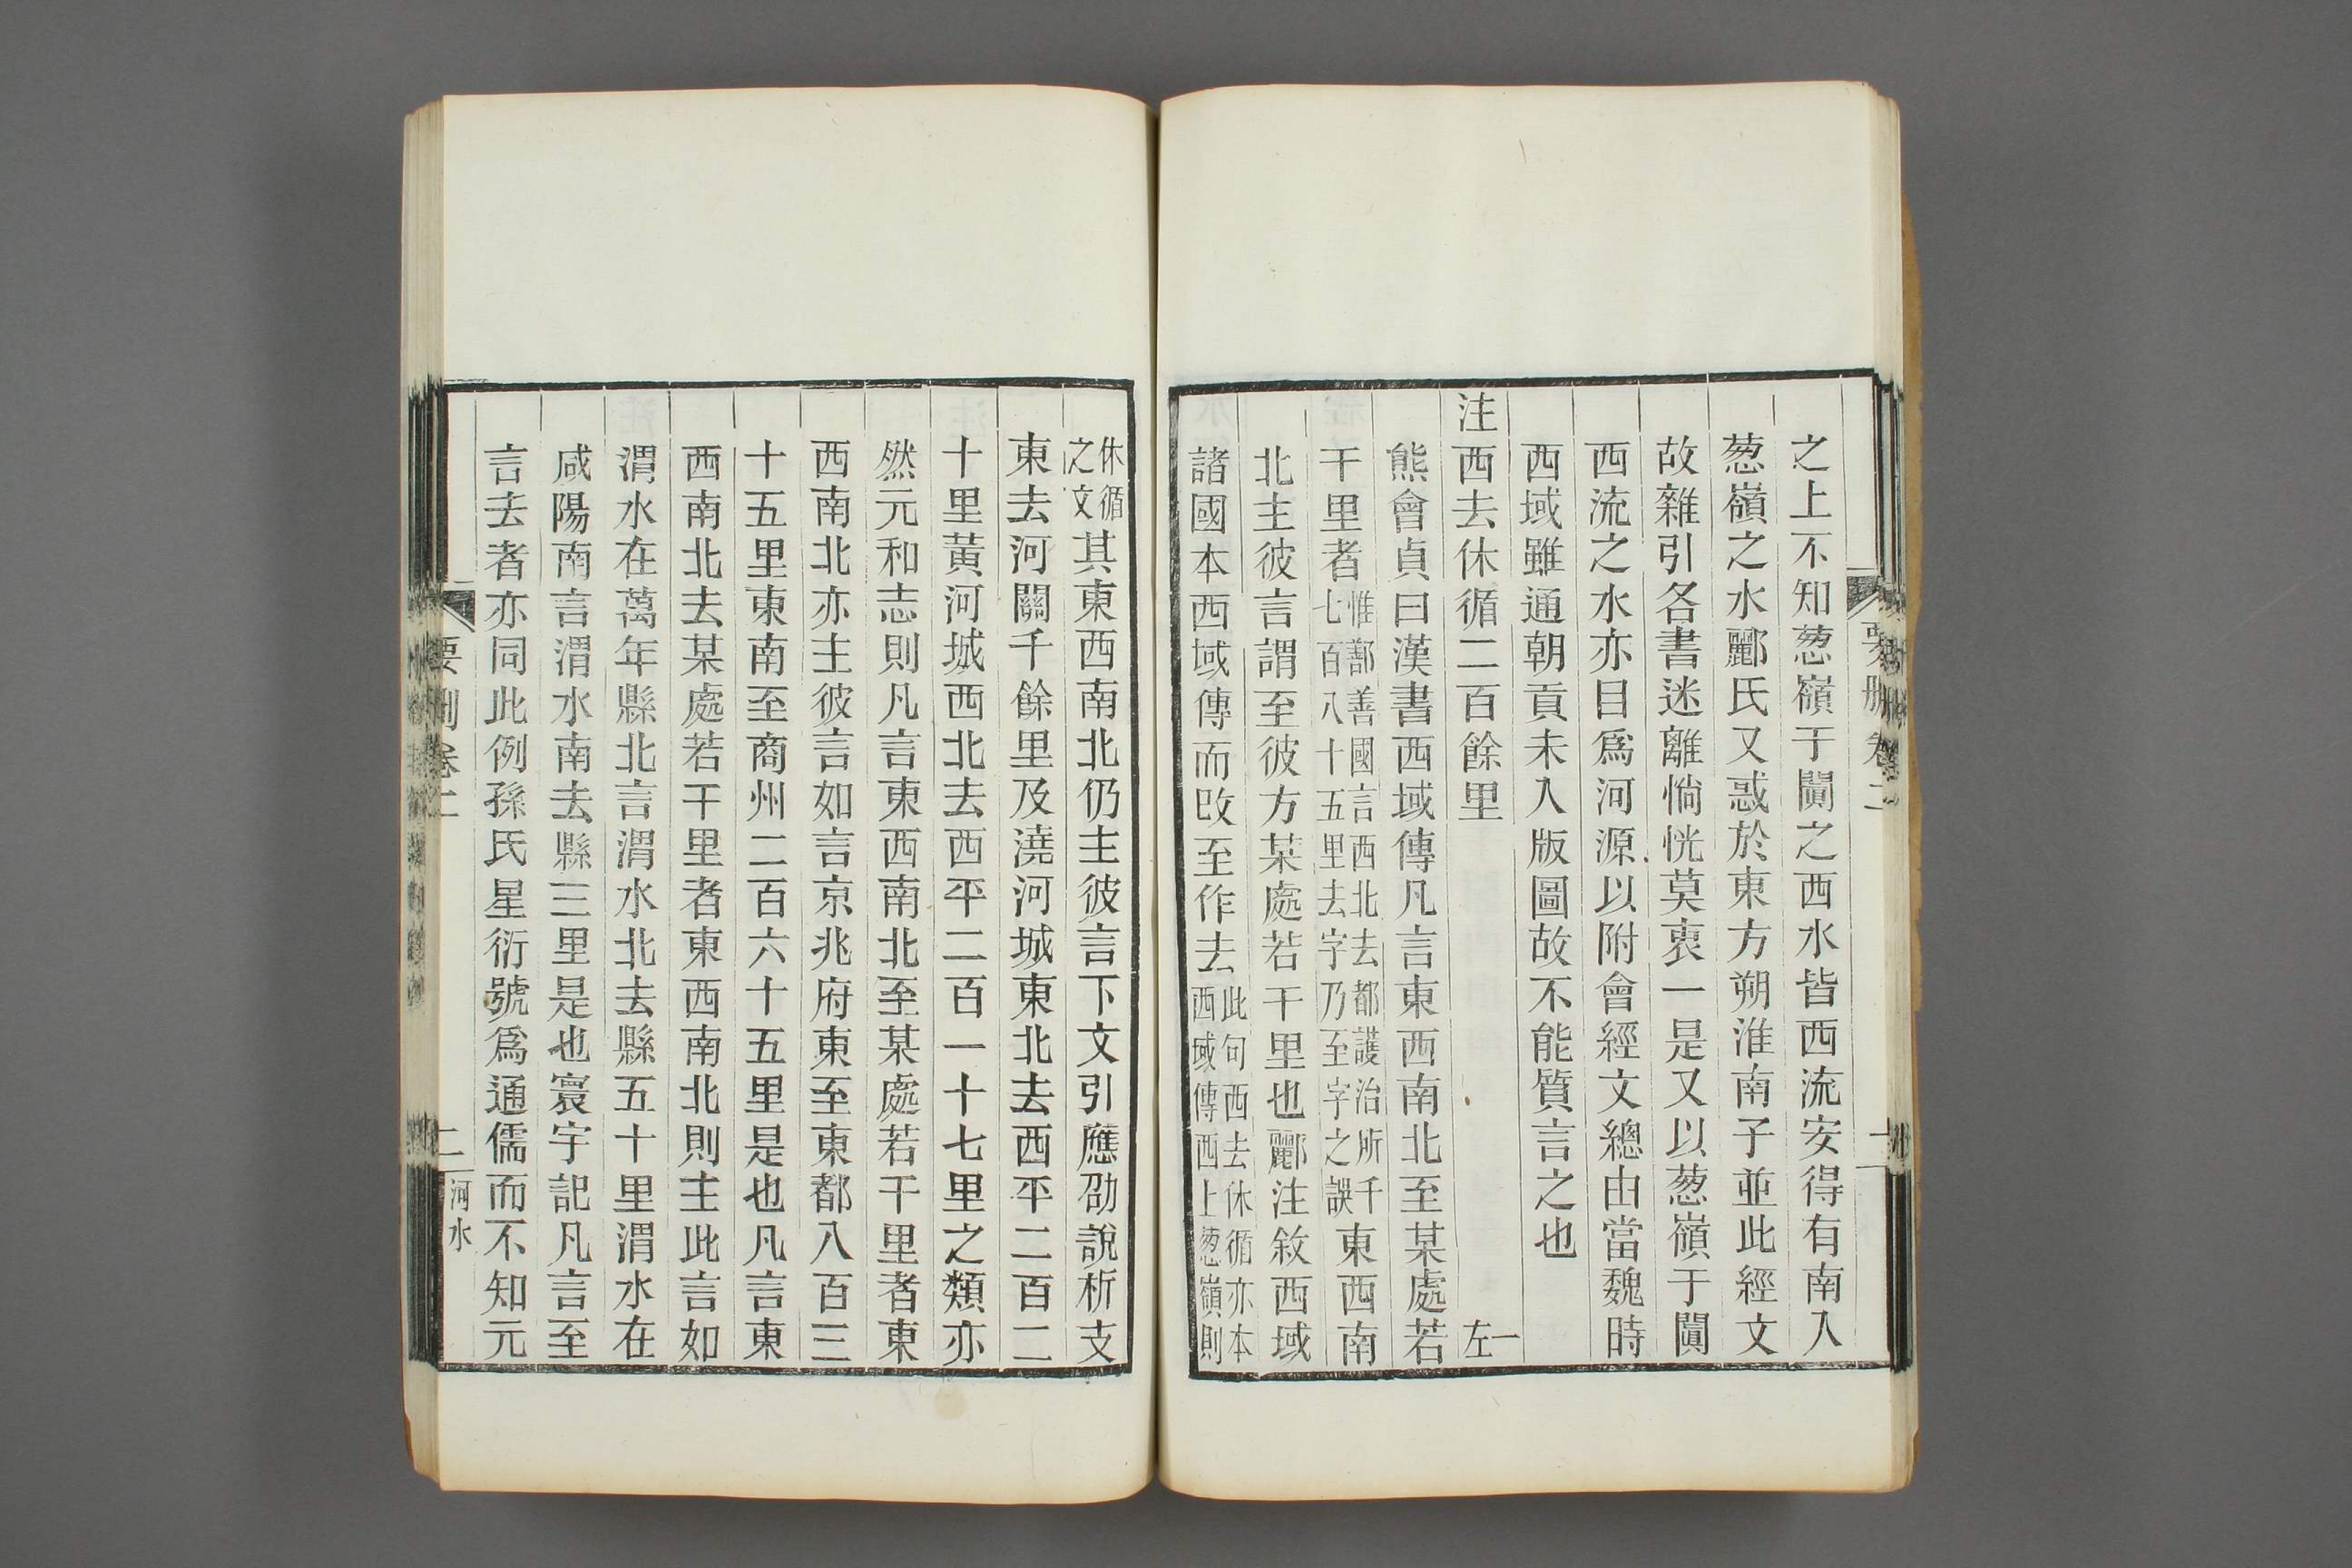 之上不知葱嶺于闐之西水皆西流安得有南入
葱嶺之水酈氏又惑於東方朔淮南子並此經文
故雜引各書迷離惝恍莫衷一是又以葱嶺于闐
西流之水亦目爲河源以附會經文總由當魏時
西域雖通朝貢未入版圖故不能質言之也
注西去休循二百餘里 一左
熊會貞曰漢書西域傳凡言東西南北至某處若
干里者惟鄯善國言西北去都護治所千七百八十五里去字乃至字之誤東西南
北主彼言謂至彼方某處若干里也酈注敘西域
諸國本西域傳而改至作去此句西去休循亦本西域傳西上葱嶺則
休循之文其東西南北仍主彼言下文引應劭說析支
東去河關千餘里及澆河城東北去西平二百二
十里黃河城西北去西平二百一十七里之類亦
然元和志則凡言東西南北至某處若干里者東
西南北亦主彼言如言京兆府東至東都八百三
十五里東南至商州二百六十五里是也凡言東
西南北去某處若干里者東西南北則主此言如
渭水在萬年縣北言渭水北去縣五十里渭水在
咸陽南言渭水南去縣三里是也寰宇記凡言至
言去者亦同此例孫氏星衍號爲通儒而不知元
要刪卷二
二 河水